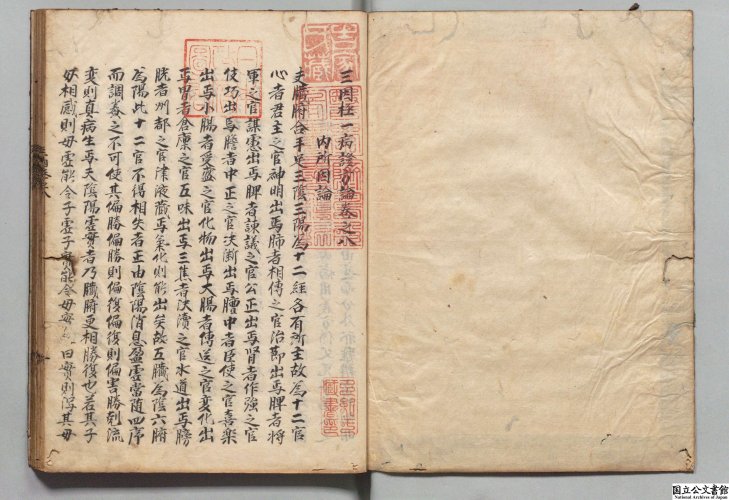 三因極一病證方論卷之八
內所因論
夫臟腑合手足三陰三陽為十二經各有所主故為十二官
心者君主之官神明出焉肺者相傅之官治節出焉脾者將
軍之官謀慮出焉脾者諫議之官公正出焉腎者作強之官
使巧出焉膽者中正之官决斷出焉膻中者臣使之官喜樂
出焉小腸者受盛之官化物出焉大腸者傳送之官變化出
焉胃者倉廩之官五味出焉三焦者决瀆之官水道出焉膀
胱者州都之官津液藏焉氣化則能出矣故五臟為陰六腑
為陽此十二官不得相失者正由陰陽消息盈虛當隨四序
而調養之不可使其偏勝偏勝則偏復偏復則偏害勝剋流
變則真病生焉夫陰陽虛實者乃臟腑更相勝復也若其子
母相感則母虛能令子虛子實能令母實曰實則瀉其
国立公文書館
National Archives of Japan